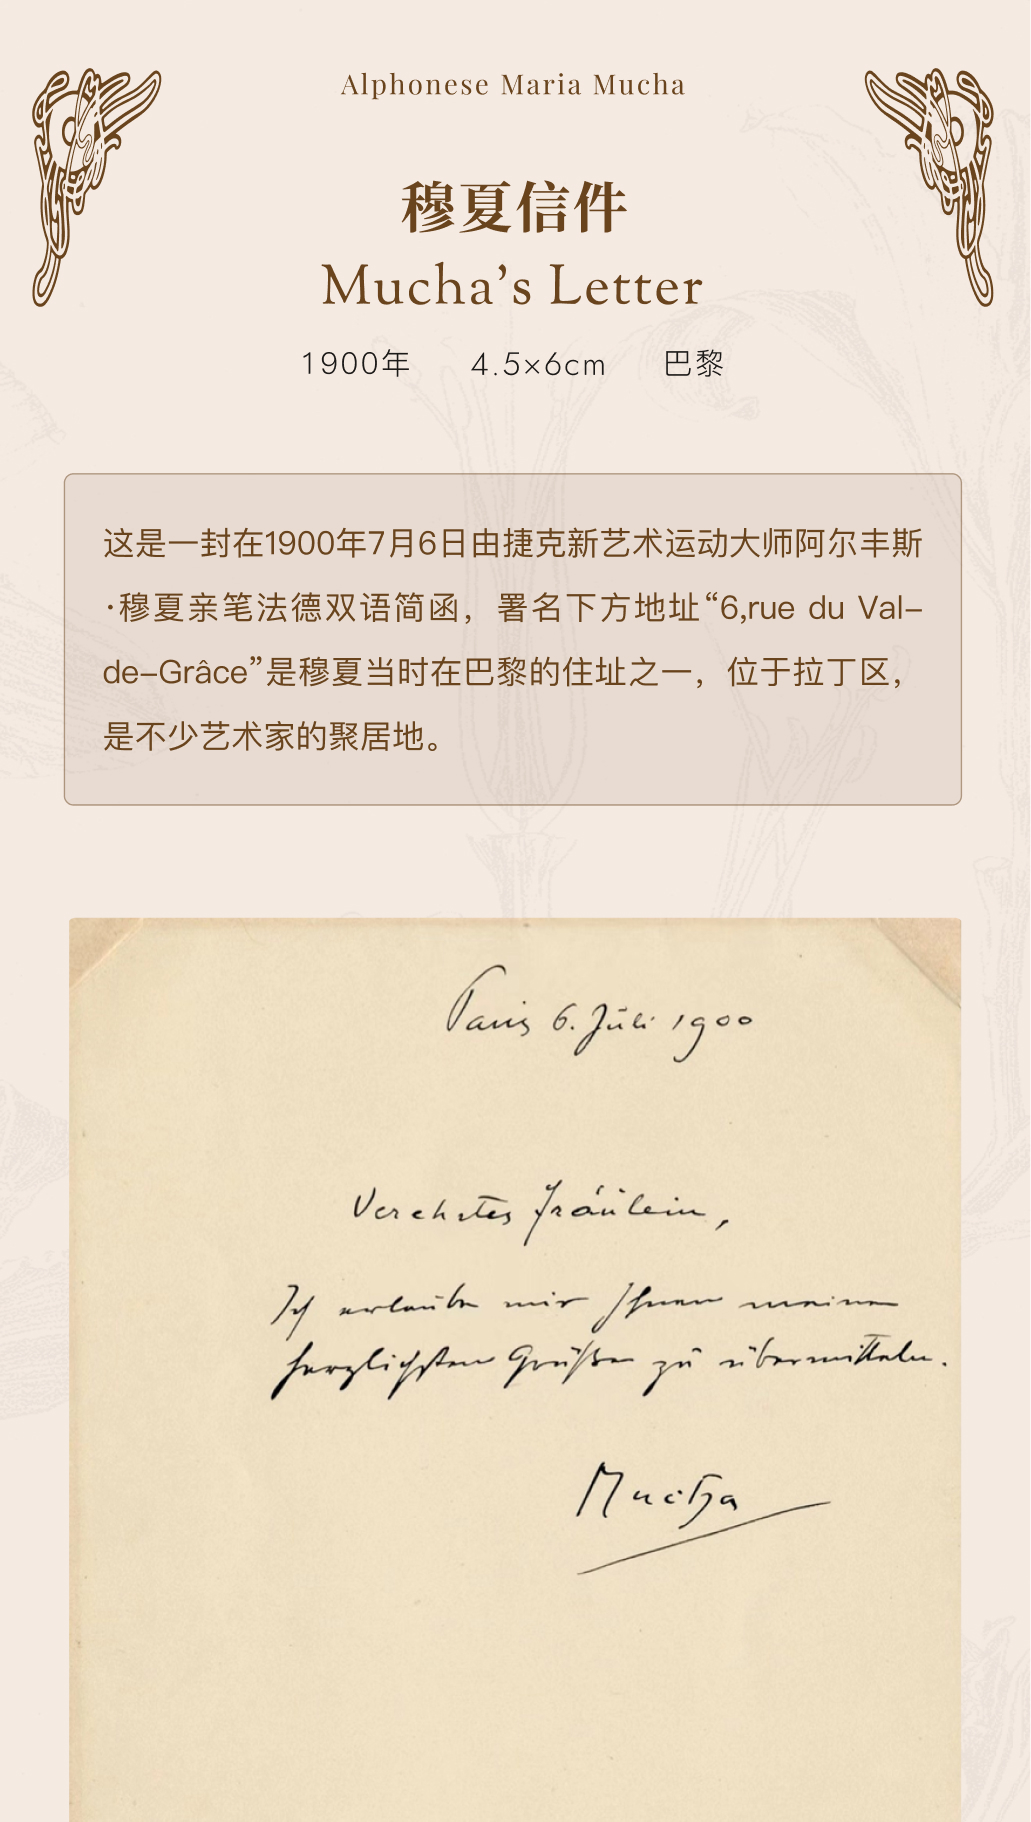 Alphonese Maria Mucha
穆夏信件
Mucha’s Letter
1900年 4.5×6cm 巴黎
这是一封在1900年7月6日由捷克新艺术运动大师阿尔丰斯
·穆夏亲笔法德双语简函，署名下方地址“6,rue du Val–
de–Grâce”是穆夏当时在巴黎的住址之一，位于拉丁区，
是不少艺术家的聚居地。
Paris 6. Juli 1900
Verehrtes Fräulein,
Ich erlaube mir Ihnen meine
herzlichsten Grüße zu übermitteln.
Mucha